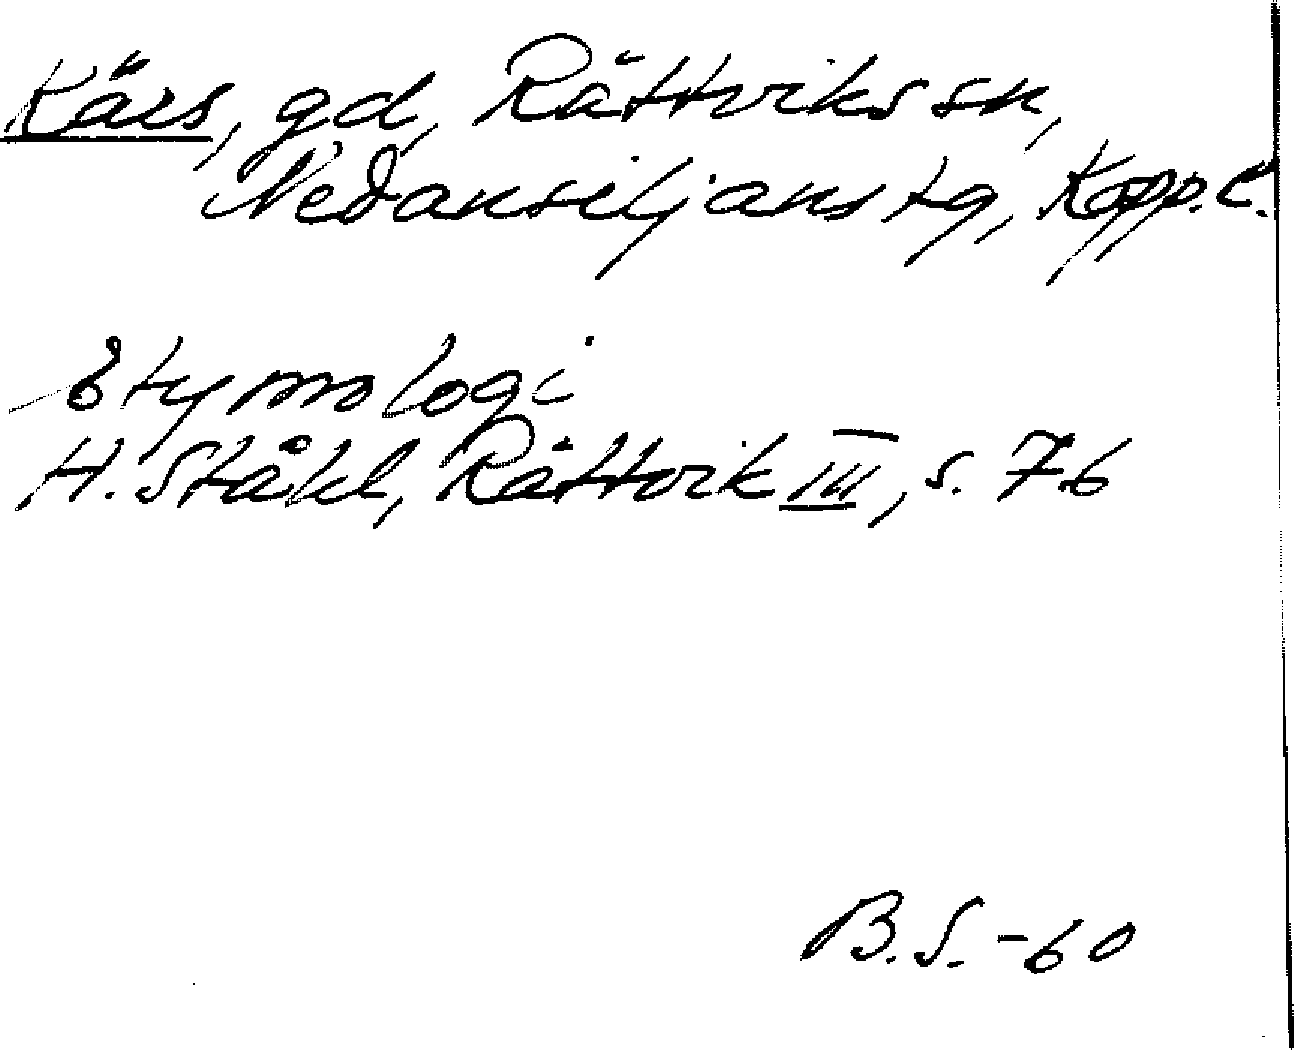 Kärs, gd, Rättviks sn,
Nedansiljans tg, Kopp. l.
Etymologi
H. Ståhl, Rättvik III, s. 76
B.S. -60